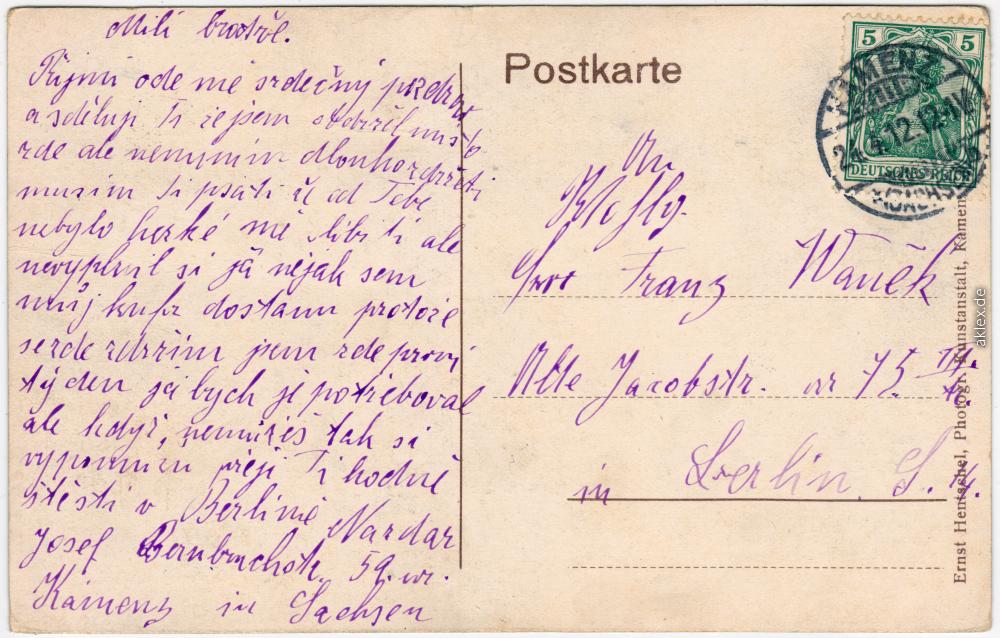 Milí bratře.
Přijmi ode mé srdečný pozdrav
a sděluji Ti že jsem obdržel místo
zde ale nemyním dlouho držeti
musím Ti psáti že od Tebe
nebylo hezké mě slíbiti ale
nevyplnil si já nějak sem
můj kufr dostanu protože
se zde zdržím jsem zde prvý
týden já bych je potřeboval
ale když nemůžeš tak si
vypomním přeji Ti hodně
štěstí v Berlíně Nazdar
Josef 59.
Kamenz in Sachsen
Postkarte
An
Franz Waněk
Alte Jacobstr. nr 75
in Berlin. S.
5 5
DEUTSCHES REICH
KAMENZ
12.12-1V.
(SACHSEN)
Ernst Hentschel, Photogr. Kunstanstalt, Kamenz
aklex.de